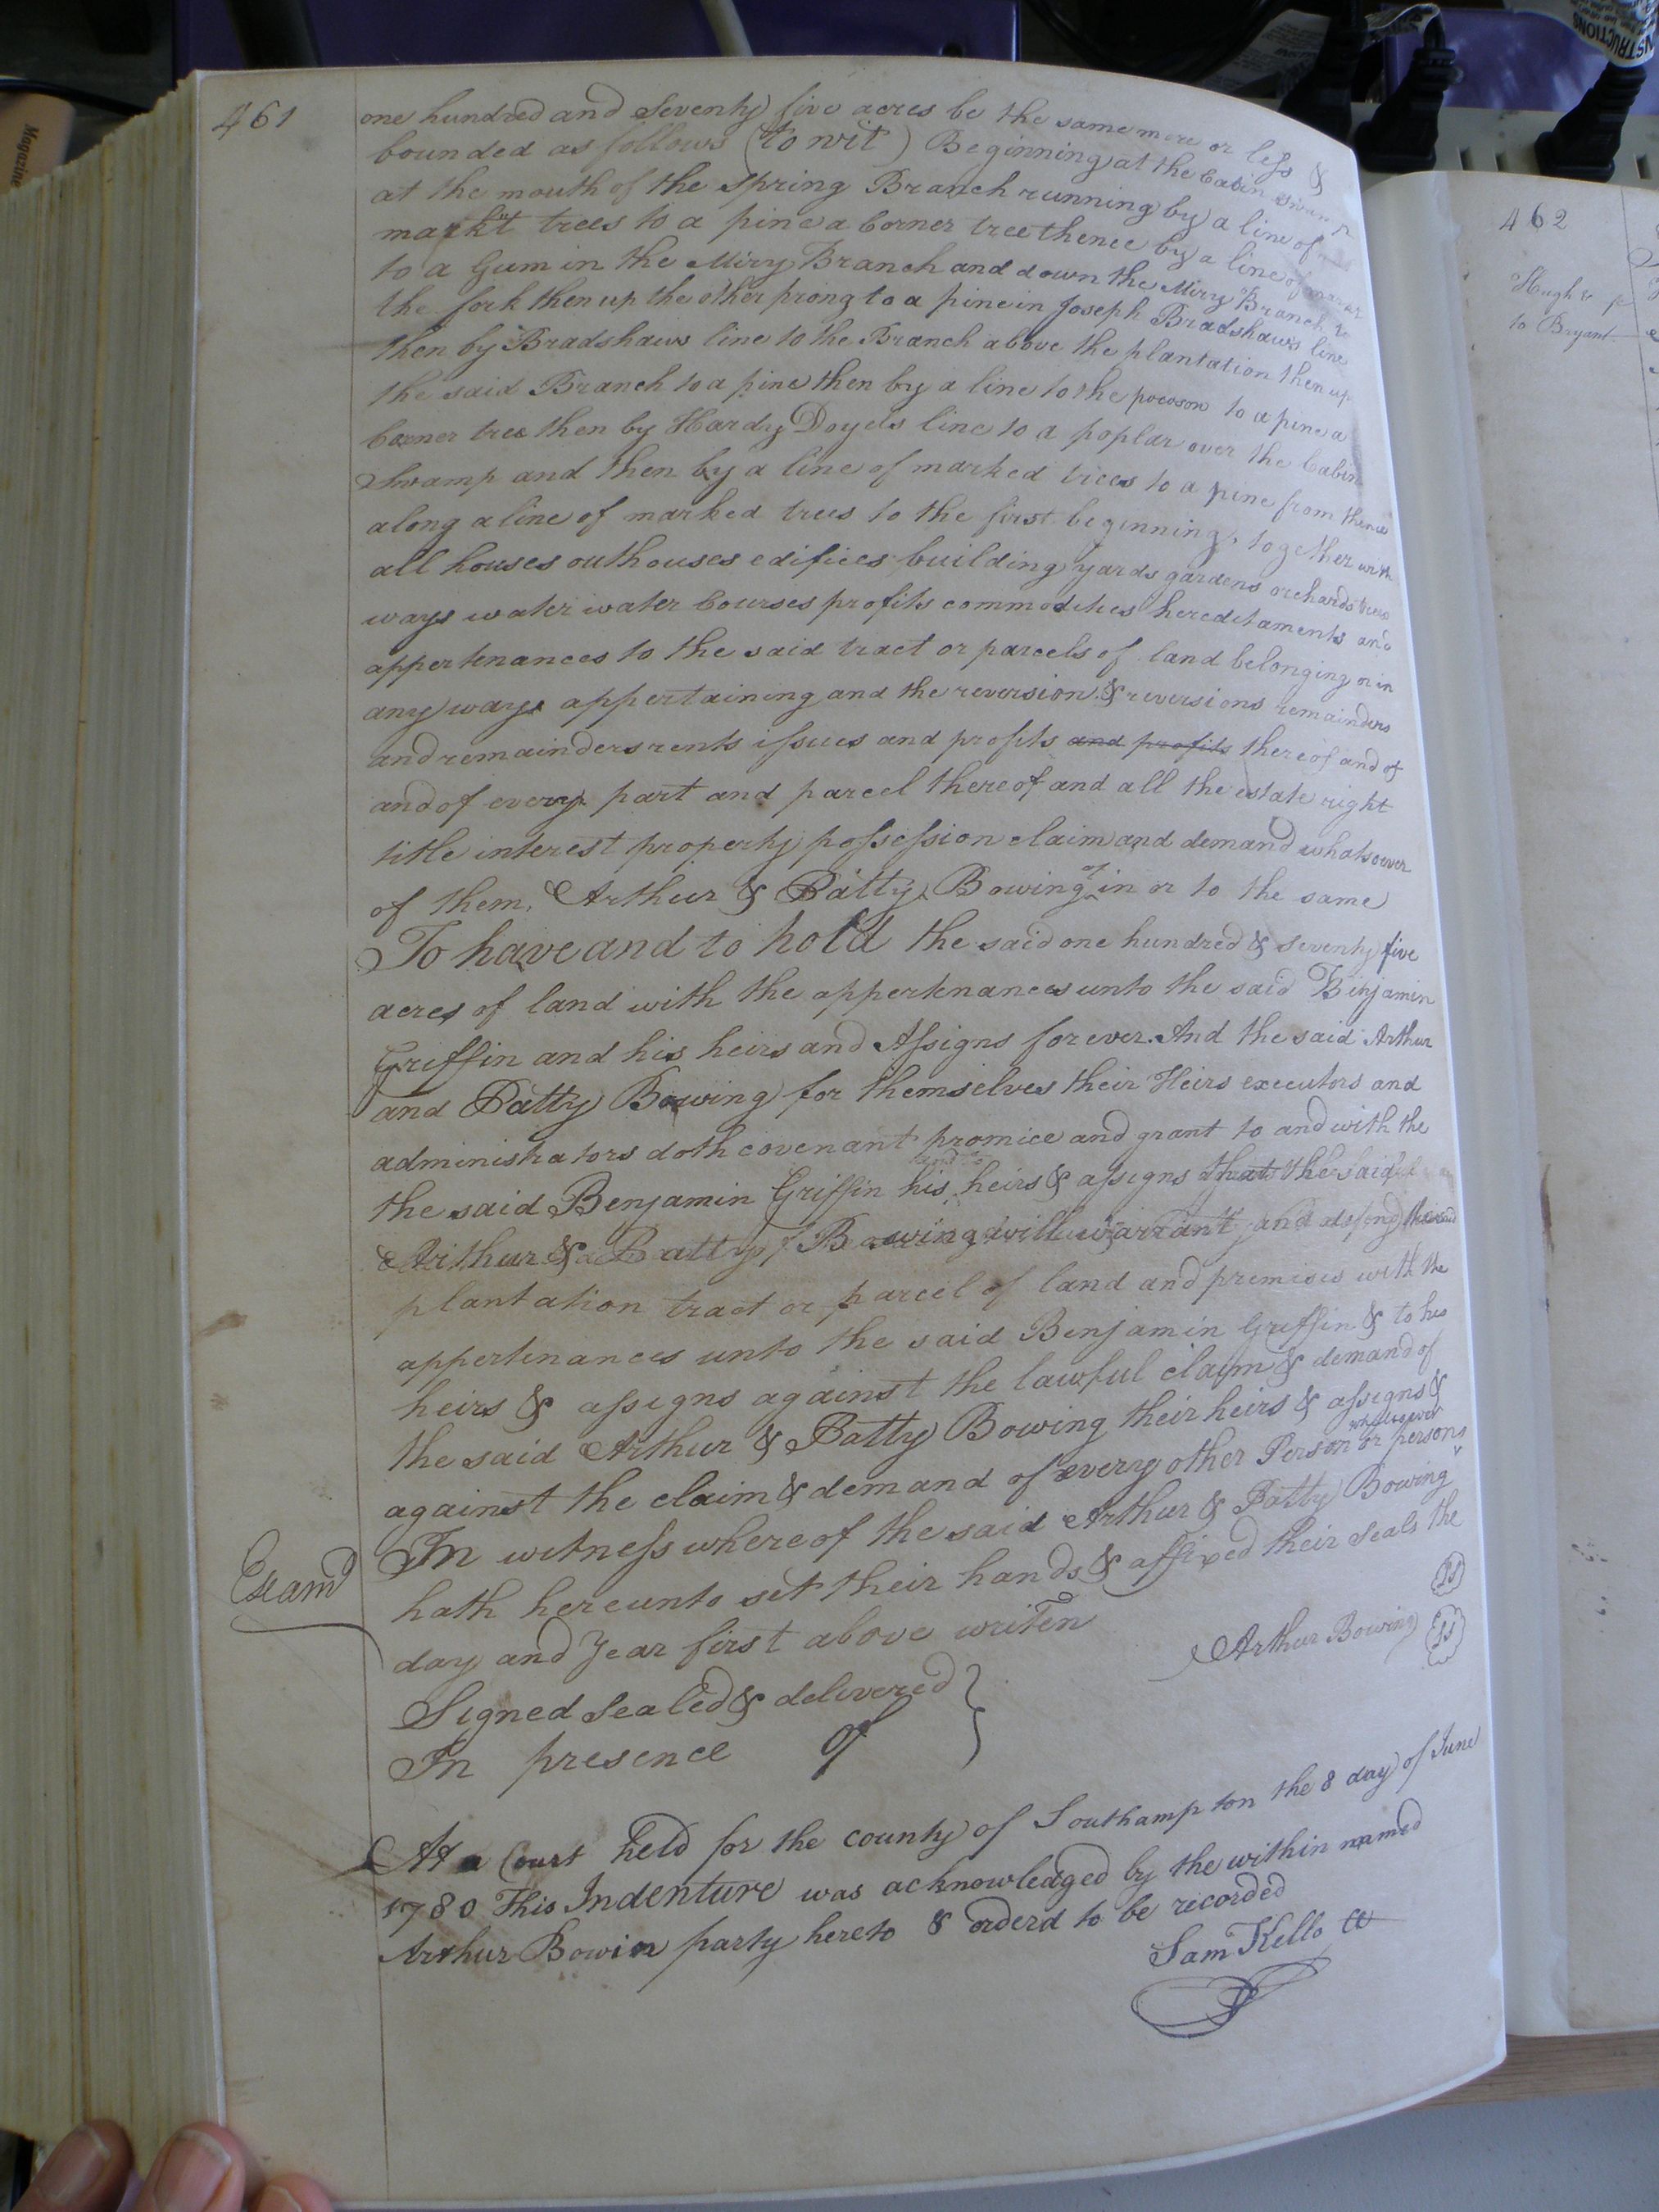 461
one hundred and Seventy five acres be the same more or less &
bounded as follows (to wit) Beginning at the Cabin swamp
at the mouth of the spring Branch running by a line of
markt trees to a pine a Corner tree thence by a line of
to a Gum in the Miry Branch and down the Miry Branch to
the fork then up the other prong to a pine in Joseph Bradshaws line
then by Bradshaws line to the Branch above the plantation then up
the said Branch to a pine then by a line to the pocoson to a pine a
Corner tree then by Hardy Doyels line to a poplar over the Cabin
Swamp and then by a line of marked trees to a pine from thence
along a line of marked trees to the first beginning, together with
all houses outhouses edifices building yards gardens orchards trees
ways water water Courses profits commodities hereditaments and
appertenances to the said tract or parcels of land belonging or in
any ways appertaining and the reversion & reversions remainders
and remainders rents issues and profits and profits thereof and of
and of every part and parcel thereof and all the estate right
title interest property possession claim and demand whatsoever
of them, Arthur & Patty Bowing of in or to the same
To have and to hold the said one hundred & seventy five
acres of land with the appertenances unto the said Binjamin
Griffin and his heirs and Assigns forever. And the said Arthur
and Patty Bowing for themselves their Heirs executors and
administrators doth covenant promice and grant to and with the
the said Benjamin Griffin his heirs & assigns that the said
Arthur & Patty Bowing will warrant and defend
plantation tract or parcel of land and premises with the
appertenances unto the said Benjamin Griffin & to his
heirs & assigns against the lawful claim & demand of
the said Arthur & Patty Bowing their heirs & assigns &
against the claim & demand of every other Person or persons whatsoever
In witness whereof the said Arthur & Patty Bowing
hath hereunto set their hands & affixed their seals the
day and Year first above writen
Examd
Arthur Bowing LS
LS
Signed Sealed & delivered
In presence of
At a Court held for the county of Southampton the 8 day of June
1780 This Indenture was acknowledged by the within named
Arthur Bowin party hereto & orderd to be recorded
Sam Kello CC
462
Hugh &
to Bryant
Magazine
INSTRUCTIONS